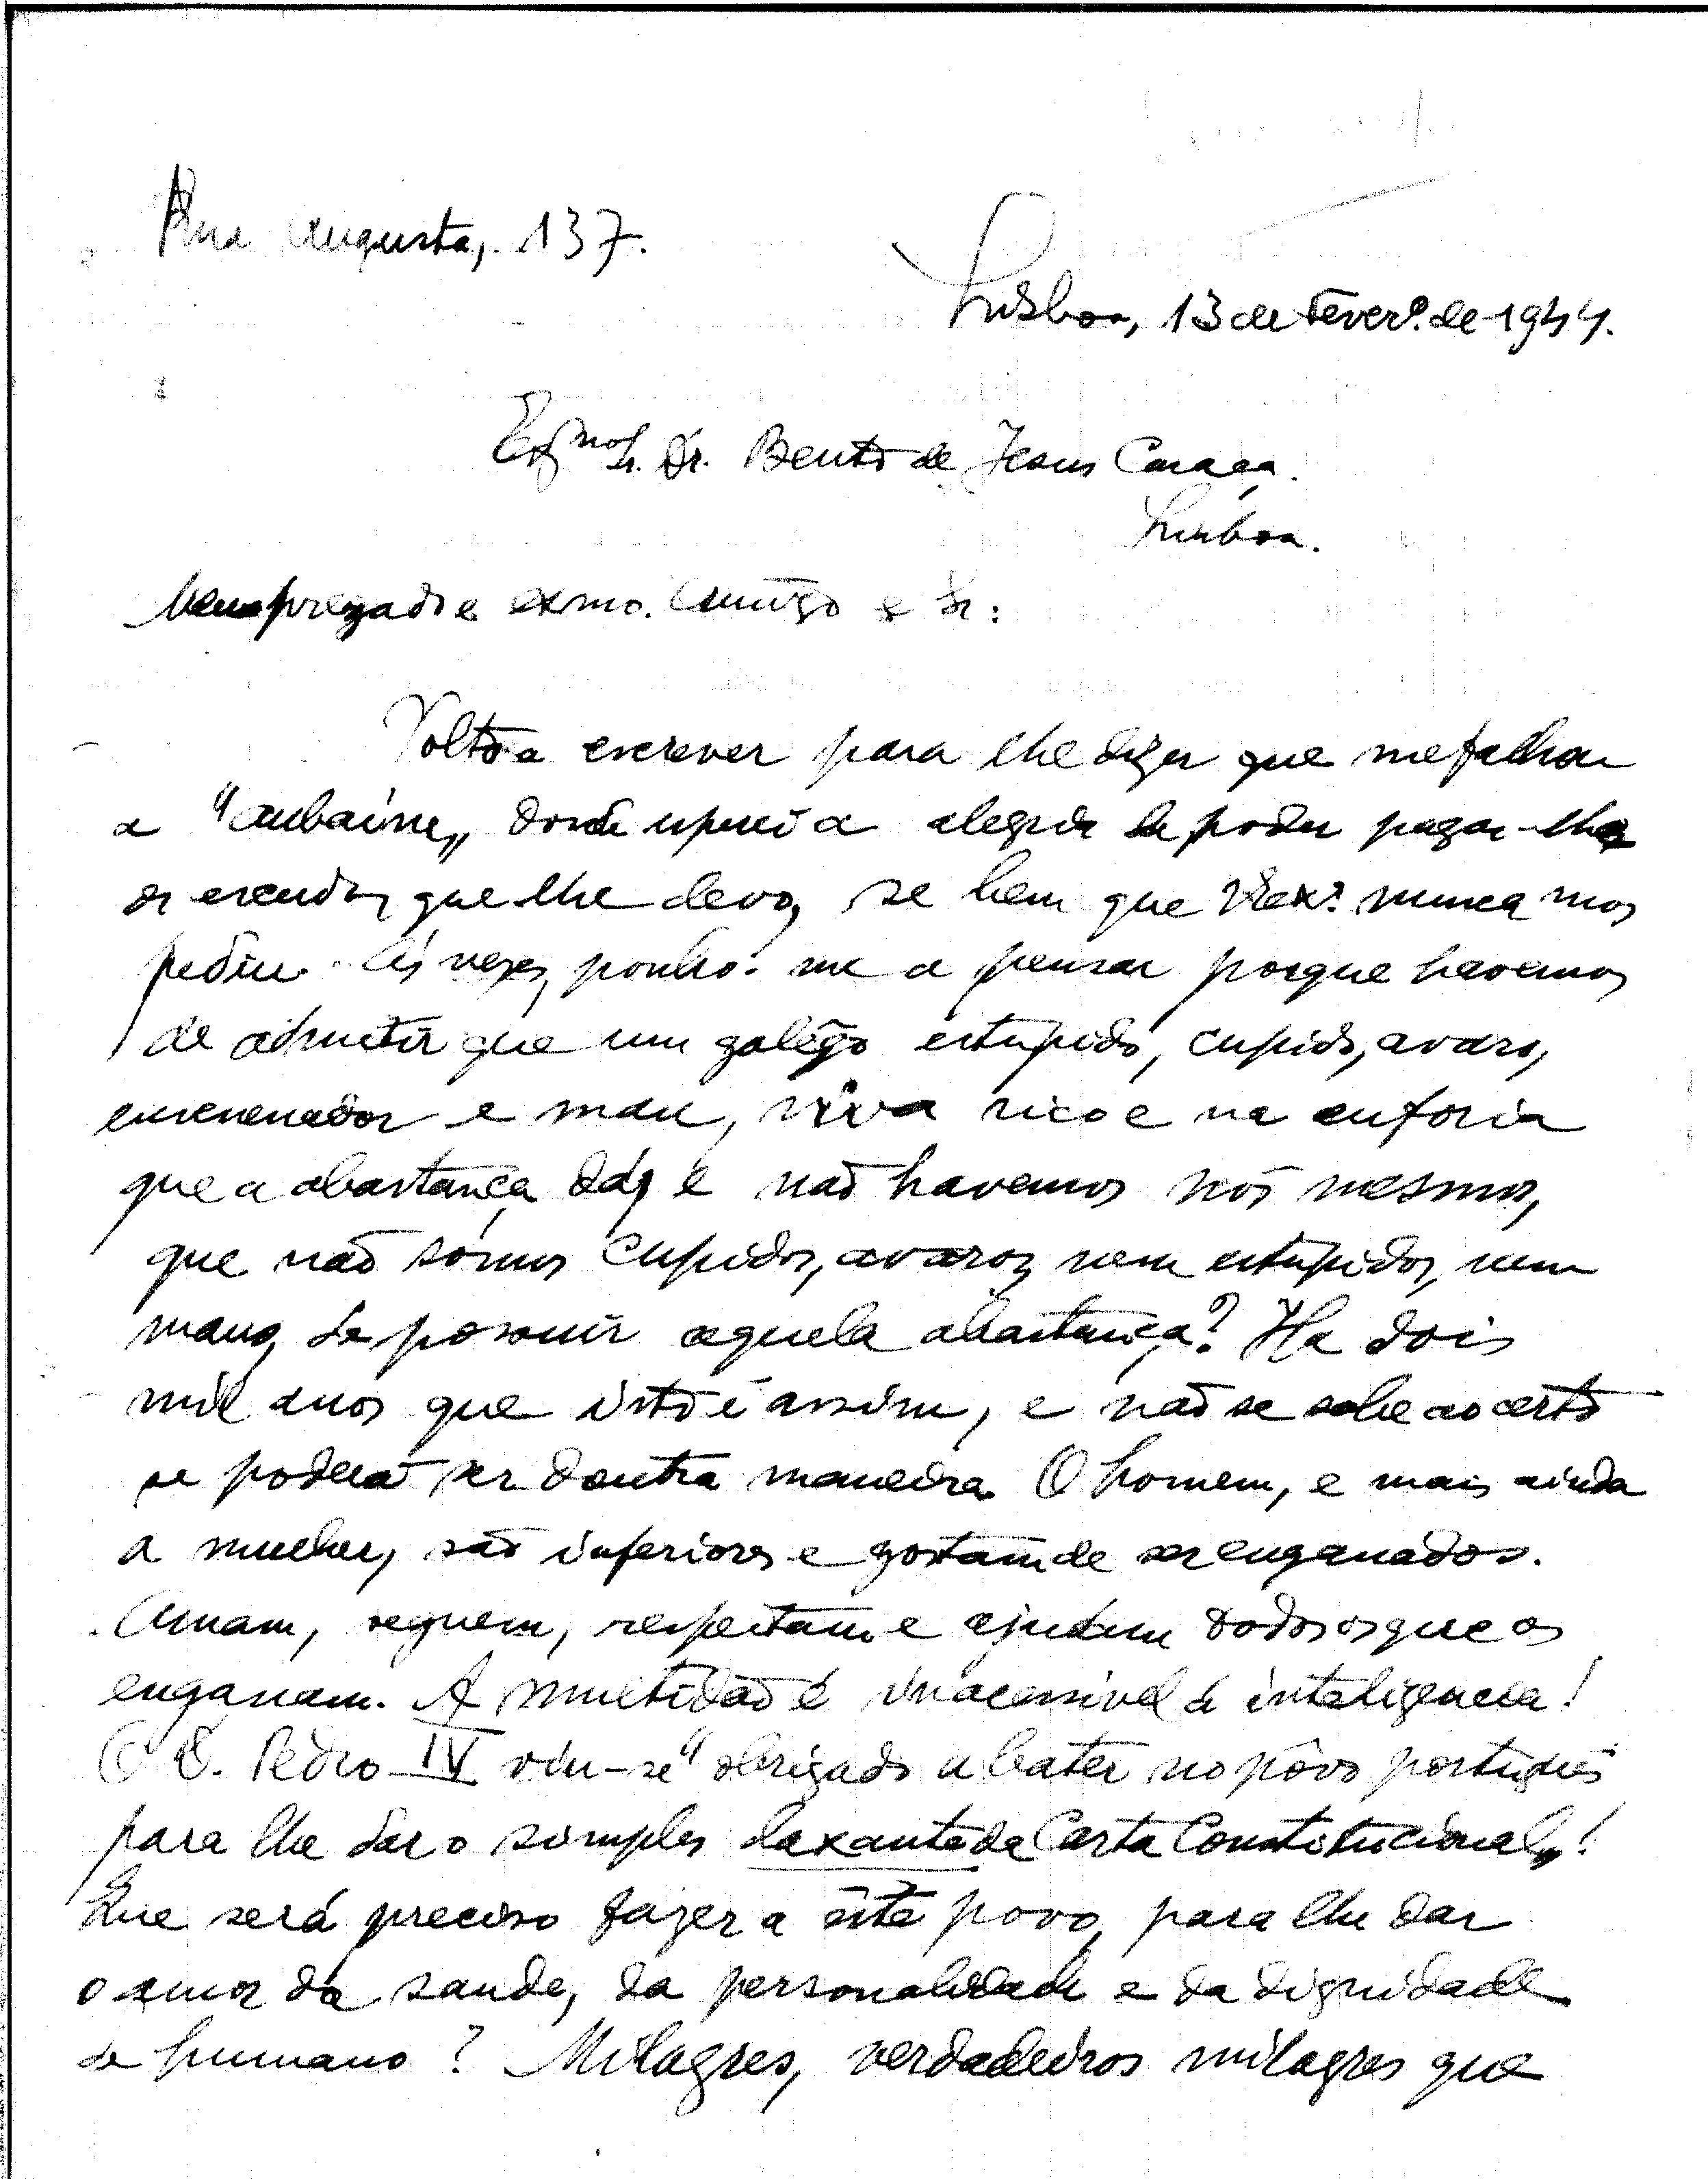 Rua Augusta, 137.
Lisboa, 13 de Fever.º de 1944.
Ex.mo Sr. Dr. Bento de Jesus Caraça.
Lisboa.
Meu prezado e exmo. amigo e Sr:
Volto a escrever para lhe dizer que me falhou
a "aubaine„ donde esperei a alegria de poder pagar-lhe
os escudos que lhe devo, se bem que V. Ex.ª nunca mos
pediu. Ás vezes, ponho-me a pensar porque havemos
de admitir que um galêgo estupido, cupido, avaro,
envenenador e mau, viva rico e na euforia
que a abastança dá, e não havemos nós mesmos,
que não sômos cupidos, avaros, nem estupidos, nem
maus, de possuir aquela abastança? Ha dois
mil anos que isto é assim, e não se sabe ao certo
se poderá ser doutra maneira. O homem, e mais ainda
a mulher, são inferiores e gostam de ser enganados.
Amam, seguem, respeitam e ajudam todos os que os
enganam. A multidão é inacessivel á inteligencia!
O D. Pedro IV viu-se "obrigado a bater no pôvo português
para lhe dar o simples laxante da Carta Constitucional„!
Que será preciso fazer a êste povo, para lhe dar
o amor da saude, da personalidade e da dignidade
de humano? Milagres, verdadeiros milagres que